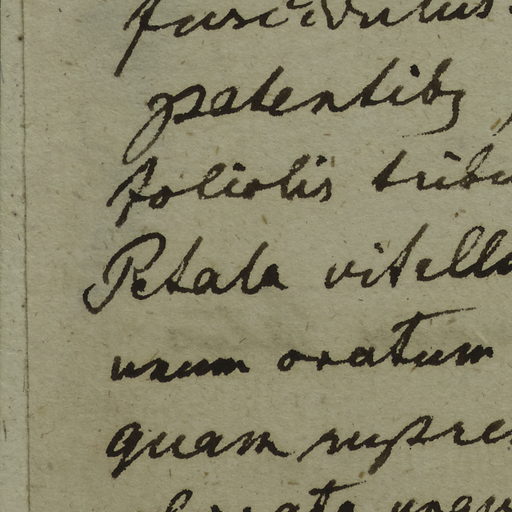 patentibꝫ
foliolis tribu
Petala vitell
unum ovatum
quam supre